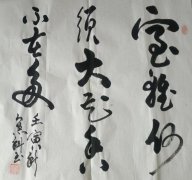 室雅何
須大花香
不在多
壬寅